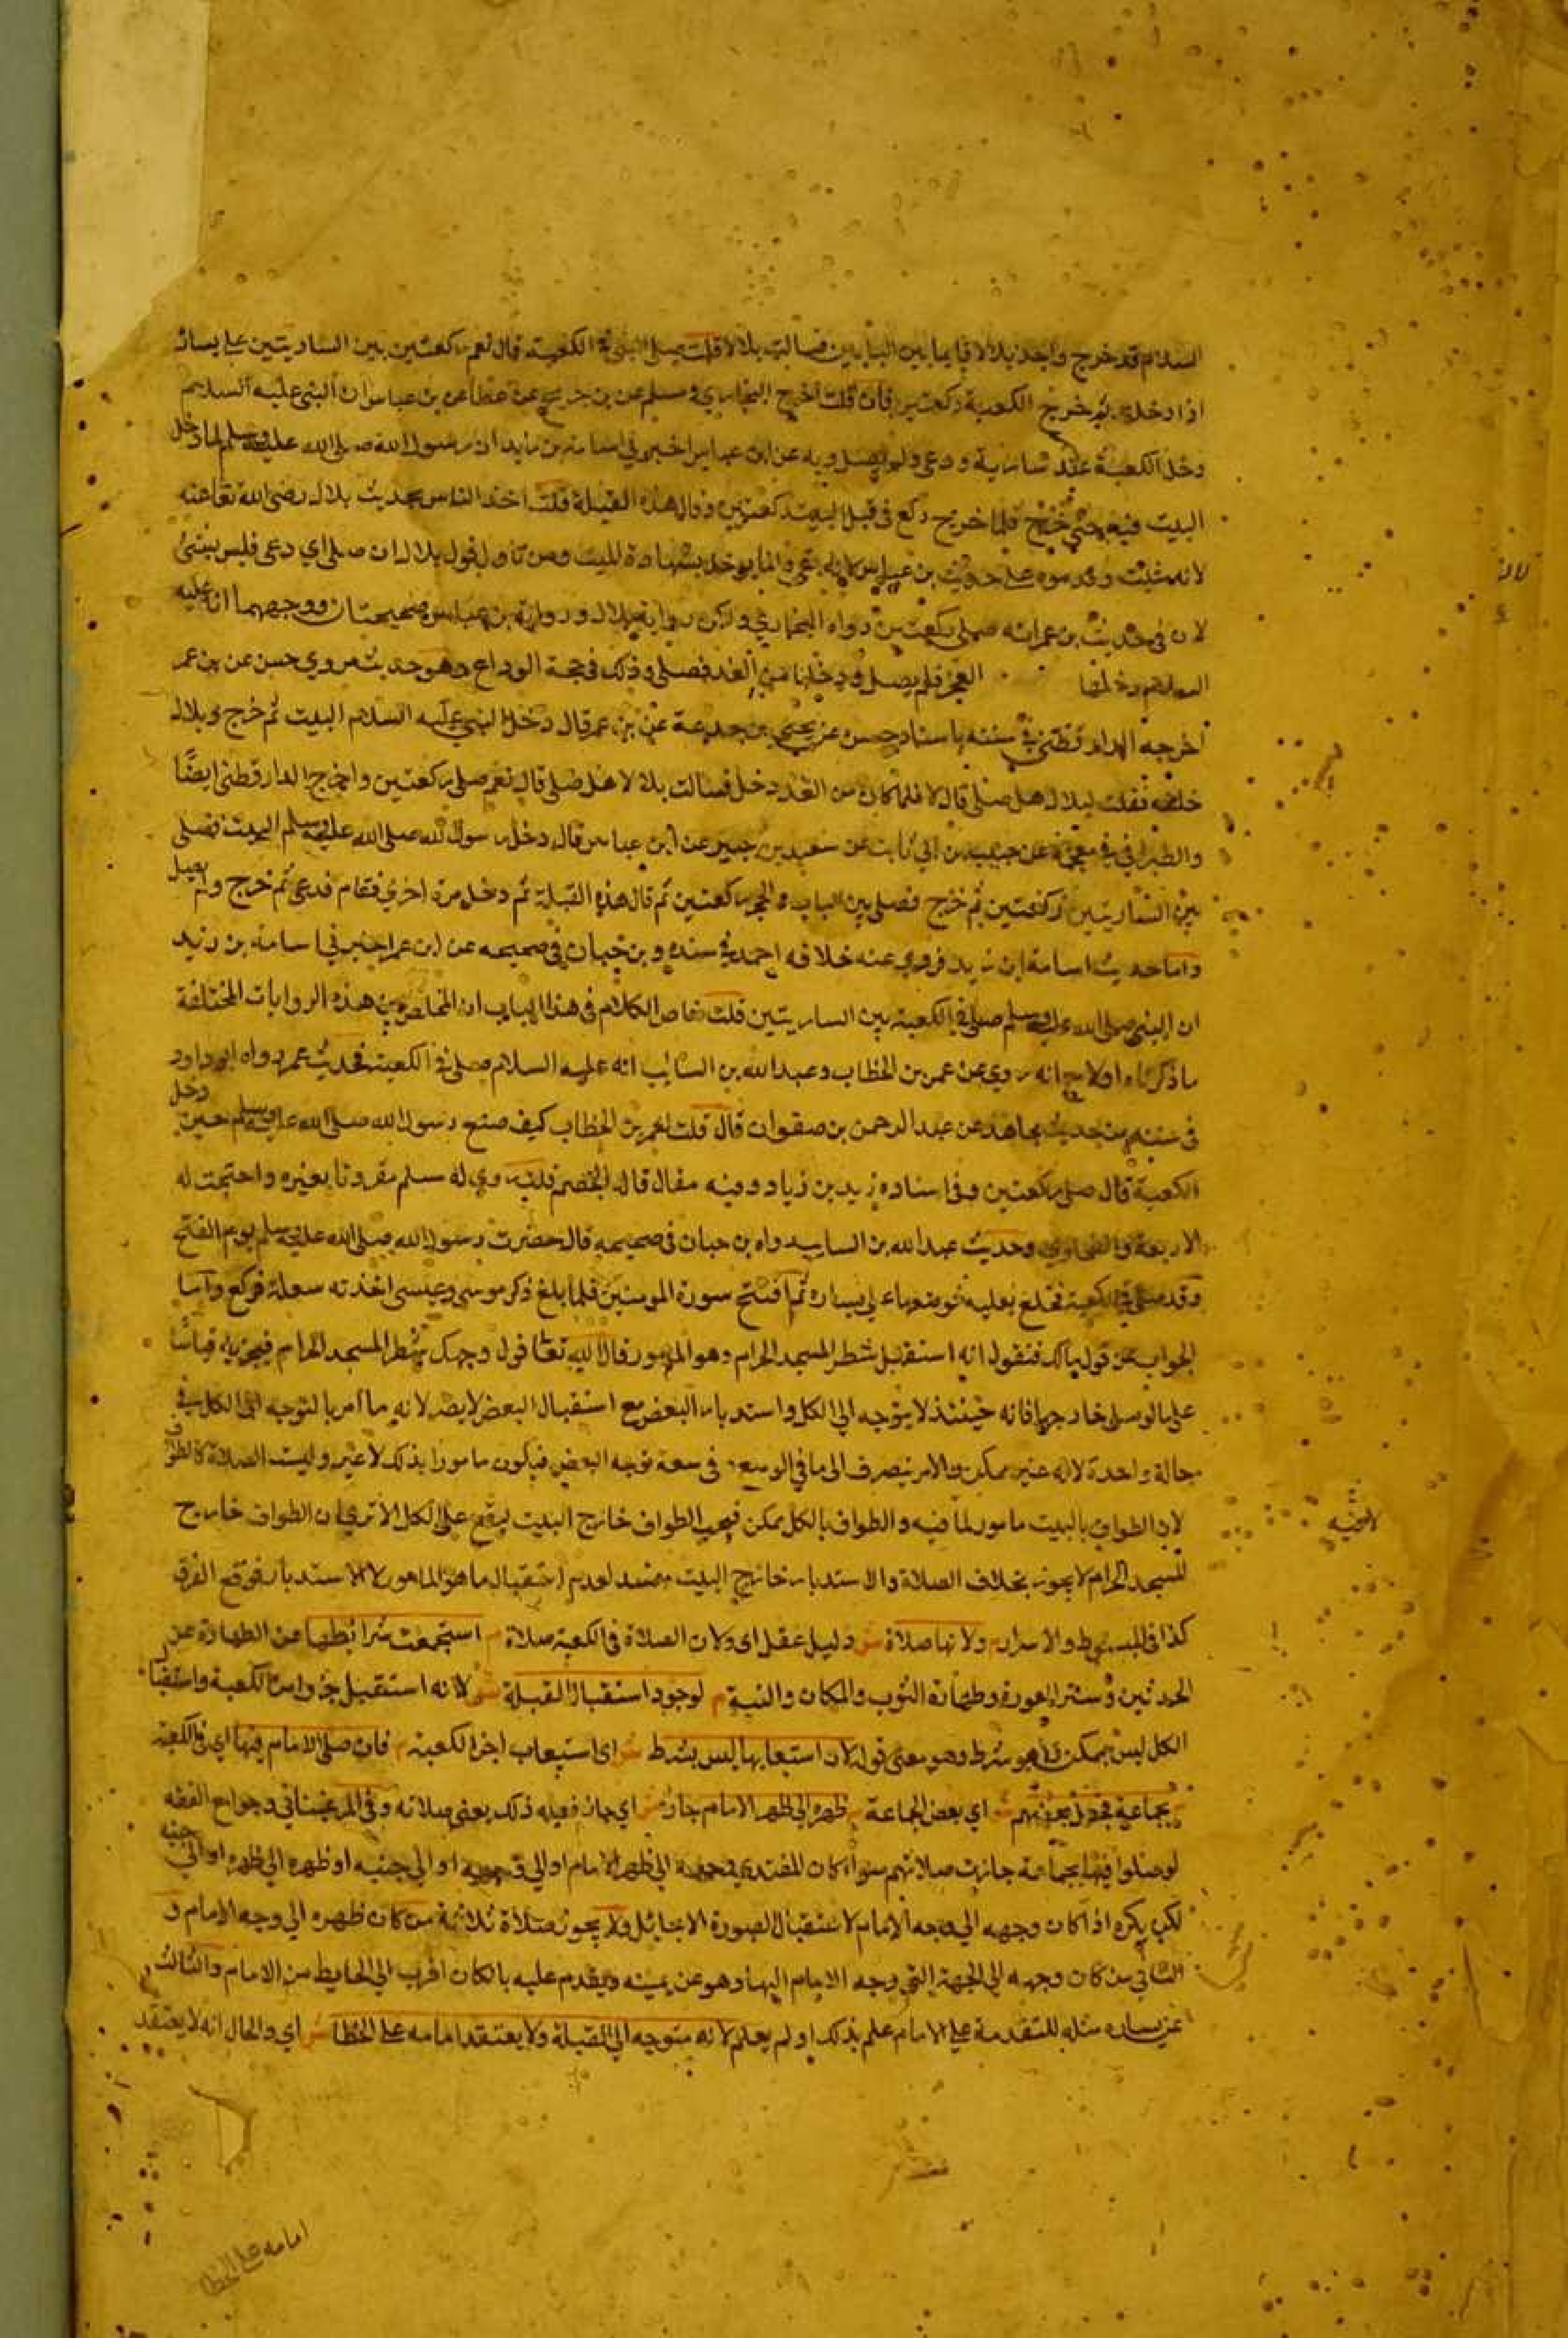 السلام قد خرج واجد بلالا قايما بين البابين فسالت بلالا قلت صلى النبي في الكعبة قال نعم ركعتين بين الساريتين على يساره
اذا دخلت ثم خرج الكعبة ركعتين فان قلت اخرج البخاري ومسلم عن بن جريج عن عطا عن بن عباس ان النبي عليه السلام
دخل الكعبة عند سارية ودعى ولم يصل وبه عن ابن عباس اخبرني اسامة بن زيد ان رسول الله صلى الله عليه وسلم لما دخل
البيت فيه حتى خرج فلما خرج ركع في قبل البيت ركعتين وقال هذه القبلة قلت اخذ الناس بحديث بلال رضي الله تعا عنه
لانه مثبت وقدموه على حديث بن عباس لانه وانما يوخذ بشهادة المثبت ومن تاول قول بلال ان صلى اي دعى فليس بشئ
لان في حديث بن عمر انه صلى ركعتين رواه البخاري ولكن رواية بلال ورواية بن عباس صحيحتان ووجههما انه عليه
السلام دخلها فلم يصل ودخلها من الغد فصلى وذلك في حجة الوداع وهو حديث مروي حسن عن بن عمر
اخرجه الدار قطني في سننه باسناد حسن عن يحيى بن جعدة عن بن عمر قال دخل النبي عليه السلام البيت ثم خرج وبلال
خلفه فقلت لبلال هل صلى قال لا فلما كان من الغد دخل فسالت بلالا هل صلى قال نعم صلى ركعتين واخرج الدار قطني ايضا
والطبراني في معجمه عن حبيب بن ابي ثابت عن سعيد بن جبير عن ابن عباس قال دخل رسول الله صلى الله عليه وسلم البيت فصلى
بين الساريتين ركعتين ثم خرج فصلى بين الباب والحجر ركعتين ثم قال هذه القبلة ثم دخل مرة اخرى فقام فدعى ثم خرج ولم يصل
واما حديث اسامة ابن زيد فروي عنه خلافه احمد في مسنده وبن حبان في صحيحه عن ابن عمر اخبرني اسامة بن زيد
ان النبي صلى الله عليه وسلم صلى في الكعبة بين الساريتين قلت خاص الكلام في هذا الباب ان المخلص من هذه الروايات المختلفة
ما ذكرناه اولا مع انه روي عن عمر بن الخطاب وعبد الله بن السائب انه عليه السلام صلى في الكعبة فحديث عمر رواه ابو داود
في سننه من حديث مجاهد عن عبد الرحمن بن صفوان قال قلت لعمر بن الخطاب كيف صنع رسول الله صلى الله عليه وسلم حين دخل
الكعبة قال صلى ركعتين وفي اسناده زيد بن زياد وفيه مقال قال الخصم قلت روي له مسلم مقرونا بغيره واحتجت له
الاربعة والطحاوي وحديث عبد الله بن السايب رواه بن حبان في صحيحه قال حضرت رسول الله صلى الله عليه وسلم يوم الفتح
وقد صلى في الكعبة فخلع نعليه فوضعهما على يساره ثم افتتح سورة المومنين فلما بلغ ذكر موسى وعيسى اخذته سعلة فركع واما
الجواب عن قول مالك فنقول انه استقبل شطر المسجد الحرام وهو المامور قال الله تعا فول وجهك شطر المسجد الحرام فيجزيه قياسا
على ما لو صلى خارجها فانه حينئذ لا يتوجه الى الكل واستدبار البعض مع استقبال البعض لا يضر لانه ما امر بالتوجه الى الكل في
حالة واحدة لانه غير ممكن والامر ينصرف الى ما في الوسع وفي وسعه توجه البعض فيكون مامورا بذلك لا غير وليست الصلاة كالطواف
لان الطواف بالبيت مامور لما فيه والطواف بالكل ممكن فيجب الطواف خارج البيت ليقع على الكل الا ترى ان الطواف خارج
المسجد الحرام لا يجوز بخلاف الصلاة والاستدبار خارج البيت مفسد لعدم استقبال ما هو المامور لا للاستدبار فوقع الفرق
كذا في المبسوط والاسرار م ولانها صلاة ش دليل عقلي اي ولان الصلاة في الكعبة صلاة م استجمعت شرائطها من الطهارة عن
الحدثين وستر العورة وطهارة الثوب والمكان والنية م لوجود استقبال القبلة ش لانه استقبل جزوا من الكعبة واستقبال
الكل ليس بممكن ولا هو شرط وهو معنى قوله لان استيعابها ليس بشرط ش اي استيعاب اجزا الكعبة م فان صلى الامام فيها اي في الكعبة
م بجماعة فجعل بعضهم ش اي بعض الجماعة م ظهره الى ظهر الامام جاز ش اي جاز فعله ذلك يعني صلاته وفي المرغيناني وجوامع الفقه
لو صلوا فيها بجماعة جازت صلاتهم سوا كان المقتدي وجهه الى ظهر الامام او الى وجهه او الى جنبه او ظهره الى ظهره او الى جنبه
لكن يكره اذا كان وجهه الى وجه الامام لاستقبال الصورة الا بحائل ولا يجوز صلاة ثلاثة من كان ظهره الى وجه الامام و
الثاني من كان وجهه الى الجهة التي وجه الامام اليها وهو عن يمينه ويقدم عليه بان كان اقرب الى الحايط من الامام والثالث
عن يساره مثله للتقدمة على الامام علم بذلك او لم يعلم لانه متوجه الى القبلة ولا يعتقد امامه على الخطا ش اي والحال انه لا يعتقد
امامه على الخطا